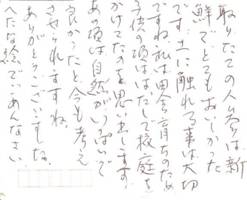 取りたての人参は新
鮮でとてもおいしかった
です。土に触れる事は大切
ですね。私は田舎育ちのため
子供の頃ははだしで校庭を
かけてたのを思い出します。
あの頃は自然がいっぱいで
良かったと今も考え
させられますね。
ありがとうございました。
たな絵でごめんなさい